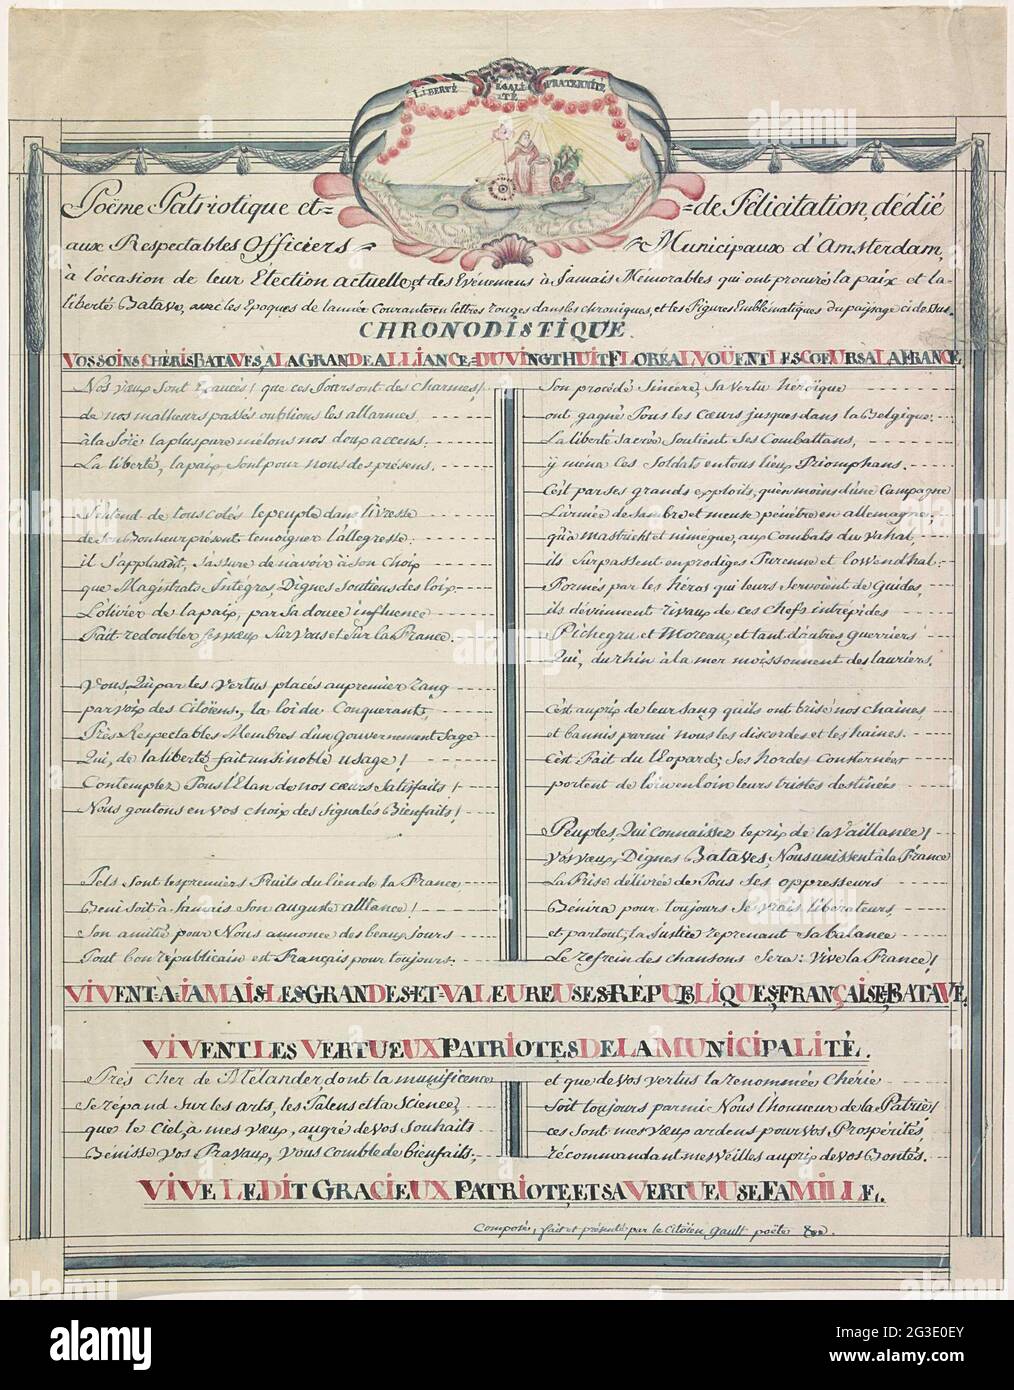 LIBERTÉ ÉGALITÉ FRATERNITÉ
Poëme Patriotique et = = de Félicitation, dédié
aux Respectables Officiers = = Municipaux d'Amsterdam,
à l'occasion de leur Élection actuelle, et des Evénemens à Jamais Mémorables qui ont procuré la paix et la
liberté Batave, avec les Epoques de l'année Courante en lettres rouges dans les chroniques, et les Figures Emblématiques du paysage ci dessus.
CHRONODISTIQUE.
VOS SOINS CHÉRIS BATAVES, À LA GRANDE ALLIANCE = DU VINGT HUIT FLORÉAL VOÜENT LES COEURS À LA FRANCE.
Nos vœux sont Exaucés! que ces Jours ont des charmes!
de nos malheurs passés oublions les allarmes
à la Joïe la plus pure mêlons nos doux accens.
La liberté, la paix sont pour nous des présens.
J'entend de tous cotés le peuple dans l'ivresse
de son Bonheur présent témoigner l'allegresse.
il s'applaudit, s'assure de n'avoir à son choix
que Magistrats Intégres, Dignes soutiens des loix.
L'olivier de la paix, par sa douce influence
Fait redoubler ses vœux Sur Vous et Sur la France.
Vous Qui par les Vertus placés au premier rang
par voix des Citoïens, la loi du Conquerant,
Très Respectables Membres d'un Gouvernement Sage
Qui, de la liberté fait un si noble usage!
Contemplez Tous l'Elan de nos cœurs Satisfaits!
Nous goutons en vos choix des signalés Bienfaits!
Tels sont les premiers Fruits du lien de la France,
Beni soit à Jamais Son auguste alliance!
Son amitié pour Nous annonce des beaux Jours
Tout bon républicain est Français pour toujours.
Son procédé Sincère, Sa vertu héroïque
ont gagné Tous les Cœurs jusques dans la Belgique:
La liberté sacrée Soutient Ses Combattans,
ÿ ména ces Soldats en tous lieux Triomphans.
C'est par ses grands exploits, qu'en moins d'une Campagne
L'armée de Sambre et meuse pénétre en allemagne,
qu'à mastricht et nimegue, aux Combats du Vahal,
ils Surpassent en prodiges Turenne et lowendhal.
Formés par les héros qui leurs Servoient de Guides,
ils déviennent rivaux de ces chefs intrépides
Pichegru et Moreau, et tant d'autres guerriers
Qui, du rhin à la mer moissonnent des lauriers.
C'est au prix de leur Sang qu'ils ont brisé nos chaines,
et bannis parmi nous les discordes et les haines.
C'est Fait du lEopard; Ses hordes Consternées
portent de loin en loin leurs tristes destinées
Peuples, Qui connaissez le prix de la Vaillance!
Vos vœux, Dignes Bataves, Nous unissent à la France
La Frise délivrée de Tous Ses oppresseurs
Bénira pour toujours Ses vrais libérateurs,
et partout, la Justice reprenant Sa balance
Le refrein des chansons Sera: Vive la France!
VIVENT À JAMAIS LES GRANDES ET VALEUREUSES RÉPUBLIQUES, FRANÇAISE, BATAVE.
VIVENT LES VERTUEUX PATRIOTES DE LA MUNICIPALITÉ.
Très cher de Mélander, dont la munificence
Se répand Sur les arts, les Talens et la Science,
que le Ciel, à mes vœux, au gré de vos Souhaits
Bénisse vos Travaux, Vous comble de bienfaits,
et que de vos vertus la renommée Chérie
Soit toujours parmi Nous l'honneur de la Patrie!
ces Sont mes vœux ardens pour vos Prospérités,
recommandant mes Veilles au prix de vos Bontés.
VIVE LEDIT GRACIEUX PATRIOTE, ET SA VERTUEUSE FAMILLE.
Composé, fait et présenté par le Citoïen gault poëte
alamy
Image ID: 2G3E0EY
www.alamy.com